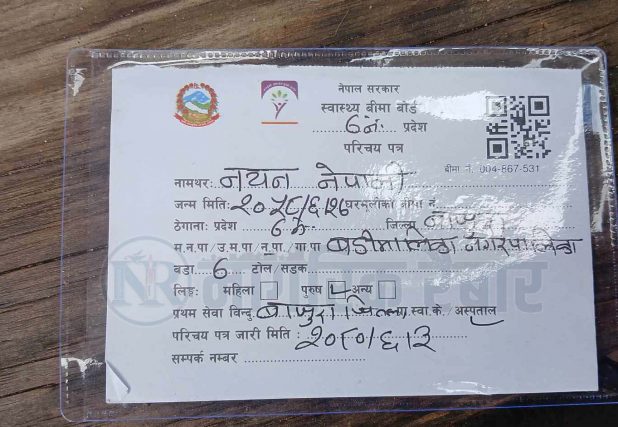 नेपाल सरकार
स्वास्थ्य बीमा बोर्ड
6 नं. प्रदेश
परिचय पत्र
बीमा नं. 004-867-531
नामथर: नयन नेपाली
जन्म मिति: २०५८/६/२6 घरमुलीको बीमा नं.
ठेगाना: प्रदेश 6 नं. जिल्ला बाजुरा
म.न.पा / उ.म.पा / न.पा. / गा.पा बडीमालिका नगरपालिका
वडा 6 टोल/सडक
लिङ्ग: महिला पुरुष अन्य
प्रथम सेवा विन्दु बाजुरा जिल्ला स्वा.के./ अस्पताल
परिचय पत्र जारी मिति : २०८०/६/२
सम्पर्क नम्बर